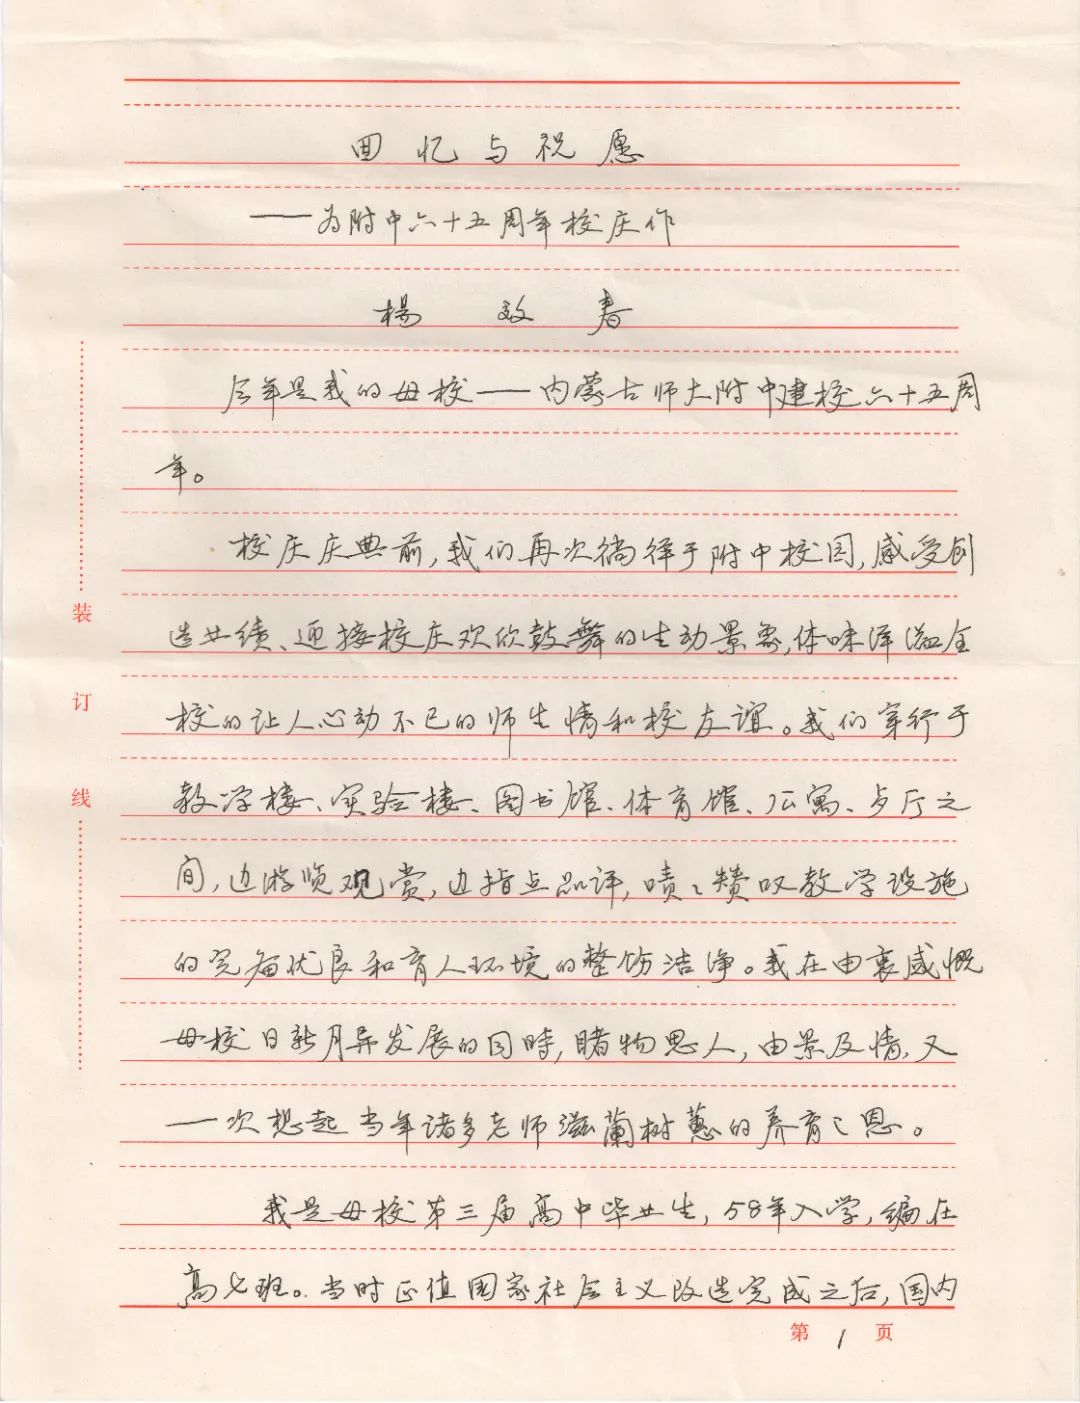 回忆与祝愿
——为附中六十五周年校庆作
楊致春
今年是我的母校——内蒙古师大附中建校六十五周
年。
校庆庆典前,我们再次徜徉于附中校园,感受创
造业绩、迎接校庆欢欣鼓舞的生动景象,体味洋溢全
校的让人心动不已的师生情和校友谊。我们穿行于
教学楼、实验楼、图书馆、体育馆、公寓、歺厅之
间,边游览观赏,边指点品评,啧々赞叹教学设施
的完备优良和育人环境的整饬洁净。我在由衷感慨
母校日新月异发展的同時,睹物思人,由景及情,又
一次想起当年诸多老师滋蘭树蕙的养育之恩。
我是母校第三届高中毕业生,58年入学,编在
高七班。当时正值国家社会主义改造完成之后,国内
装
订
线
第1页